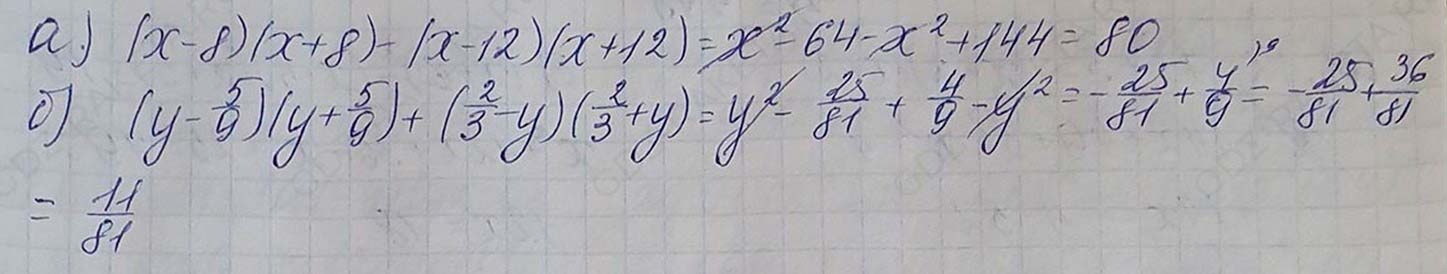 а) (x-8)(x+8)-(x-12)(x+12)=x²-64-x²+144=80
б) (y-5/9)(y+5/9)+(2/3-y)(2/3+y)=y²-25/81+4/9-y²=-25/81+4/9⁾⁹=-25/81+36/81
=11/81